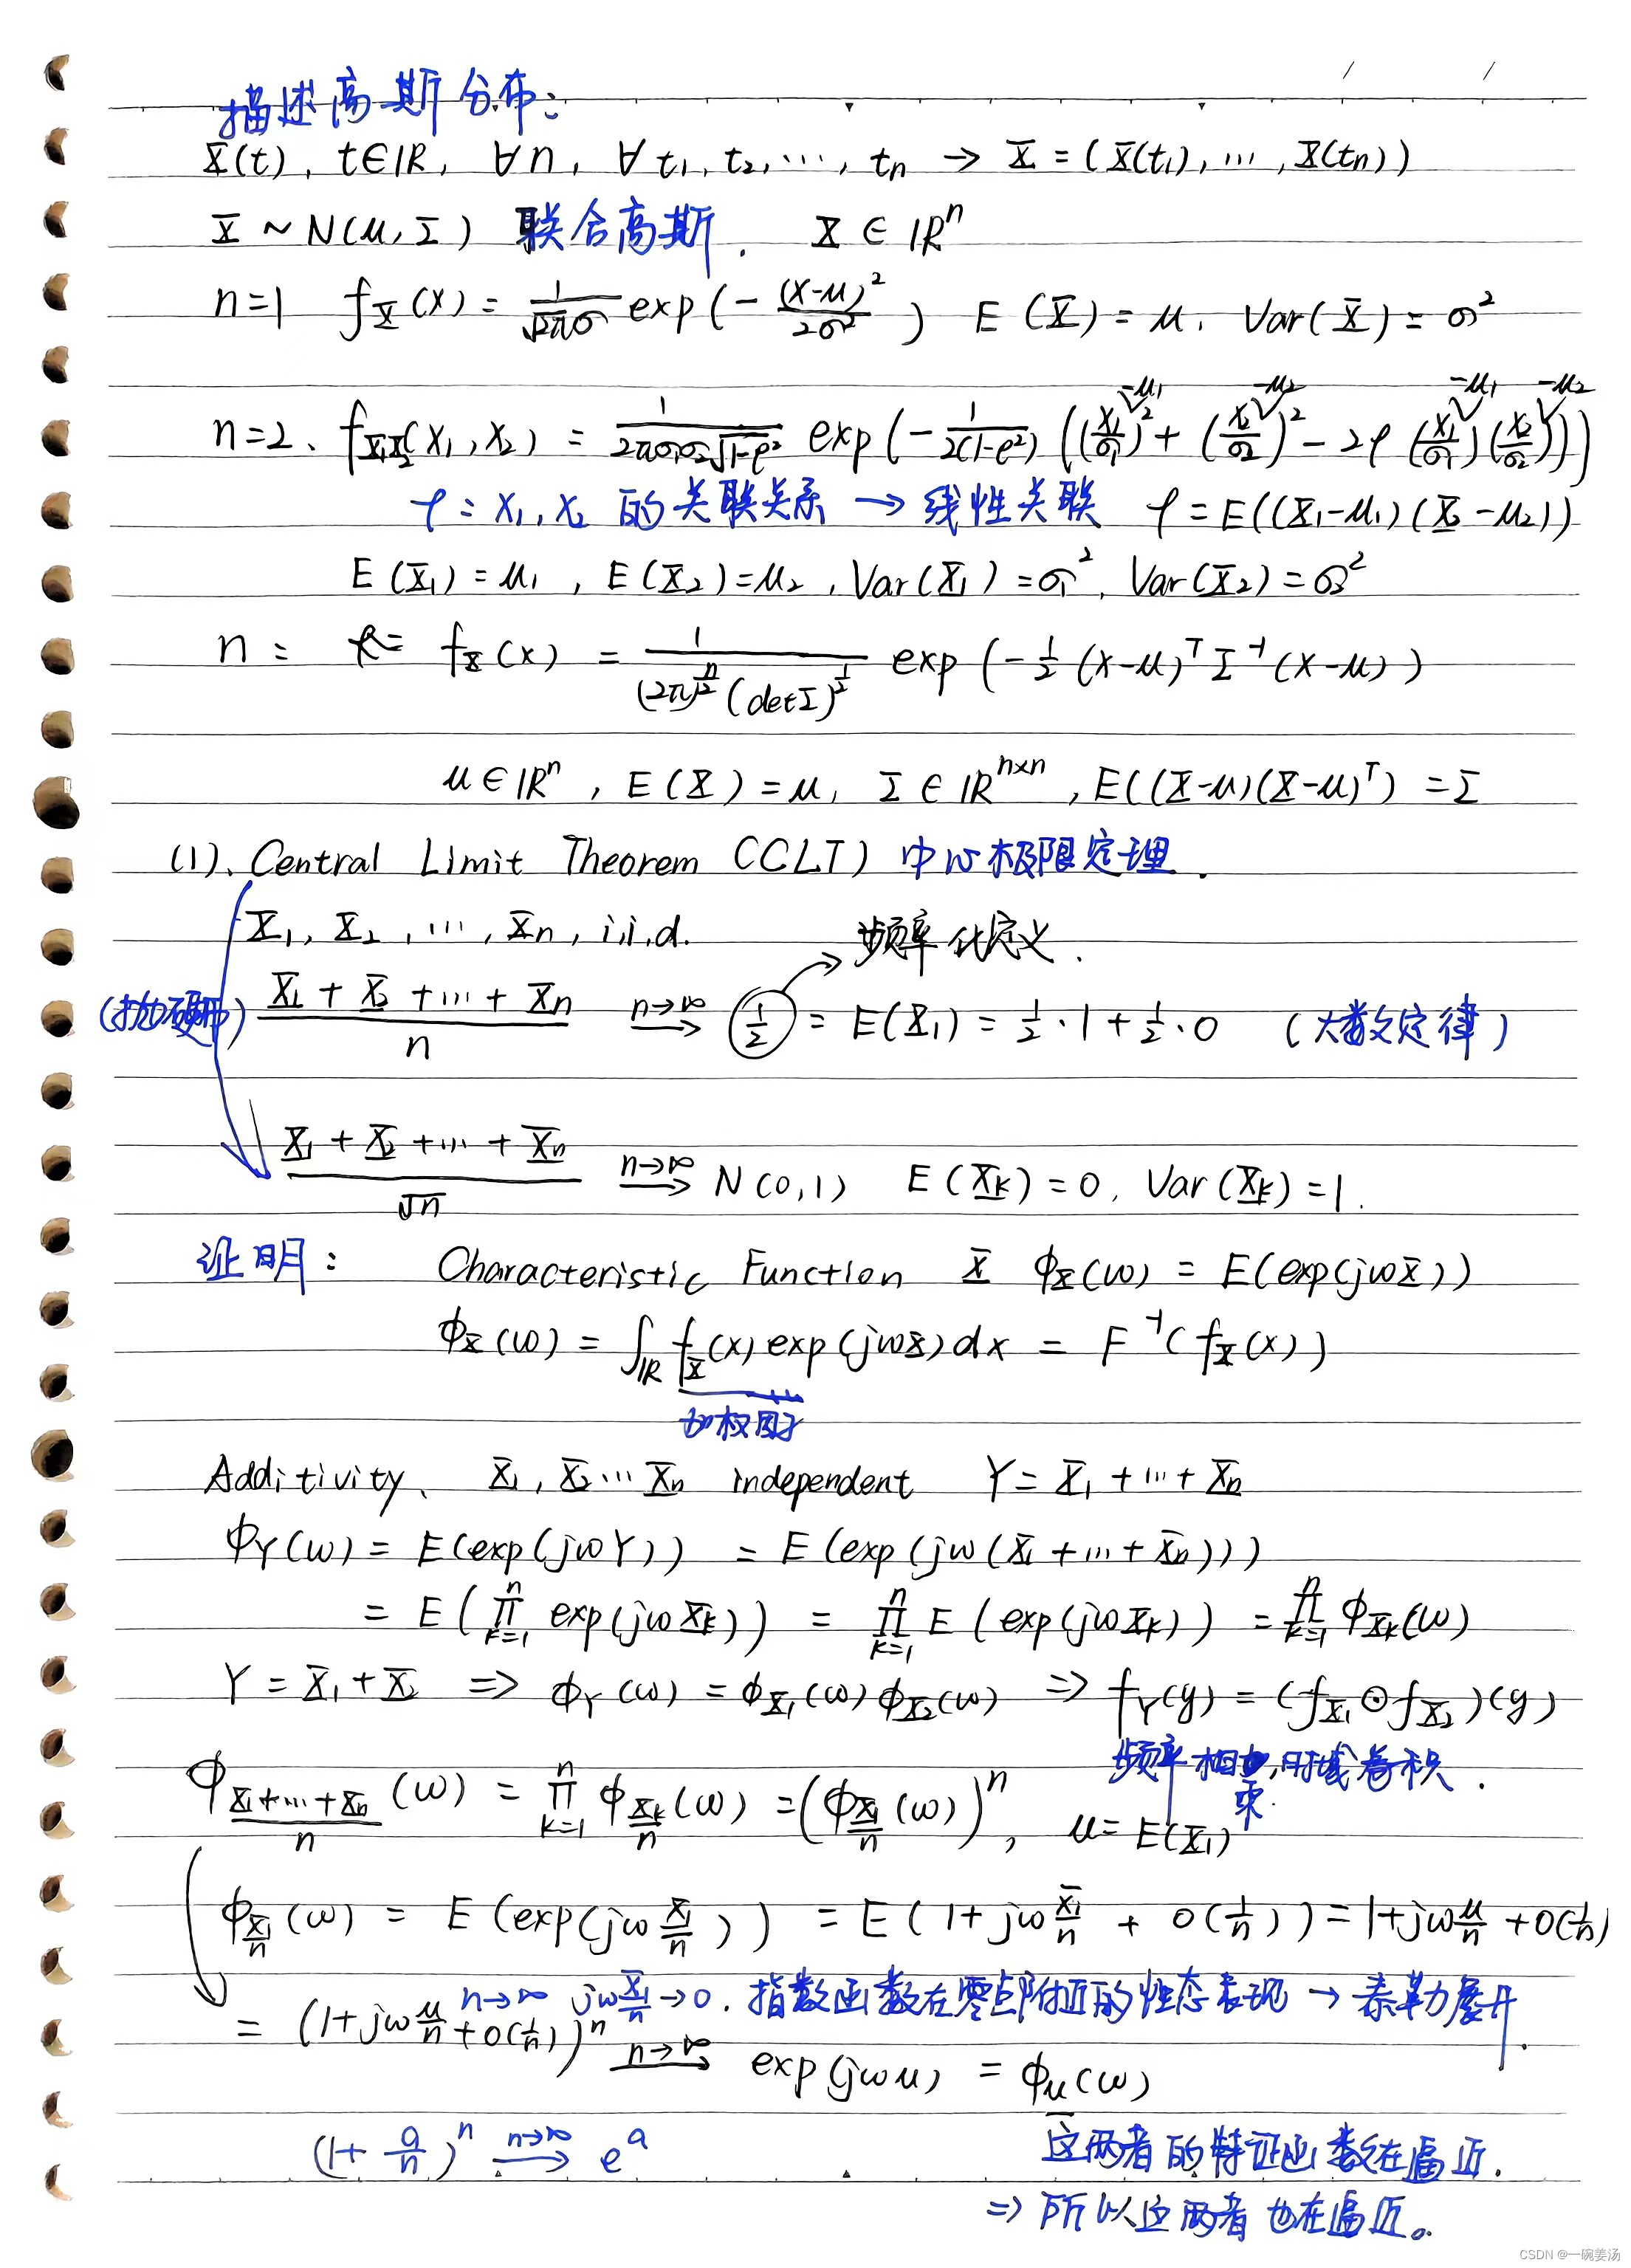 描述高斯分布:
X(t), t∈ℝ, ∀n, ∀ t₁, t₂, ⋯, tₙ → X = (X(t₁), ⋯, X(tₙ))
X ~ N(μ, Σ) 联合高斯. X ∈ ℝⁿ
n=1 f_X(x) = 1/(√(2π)σ) exp(-(x-μ)²/(2σ²)) E(X) = μ, Var(X) = σ²
n=2. f_{X₁X₂}(x₁, x₂) = 1/(2πσ₁σ₂√(1-ρ²)) exp(-1/(2(1-ρ²)) (((x₁-μ₁)/σ₁)² + ((x₂-μ₂)/σ₂)² - 2ρ((x₁-μ₁)/σ₁)((x₂-μ₂)/σ₂)))
ρ: x₁, x₂ 的关联关系 → 线性关联 ρ = E((X₁-μ₁)(X₂-μ₂))
E(X₁) = μ₁, E(X₂) = μ₂, Var(X₁) = σ₁², Var(X₂) = σ₂²
n: f_X(x) = 1/((2π)^{n/2}(detΣ)^{1/2}) exp(-1/2 (x-μ)ᵀ Σ⁻¹ (x-μ))
μ∈ℝⁿ, E(X) = μ, Σ∈ℝ^{n×n}, E((X-μ)(X-μ)ᵀ) = Σ
(1). Central Limit Theorem (CLT) 中心极限定理.
X₁, X₂, ⋯, Xₙ, i.i.d. 频率化定义.
(抛硬币) (X₁ + X₂ + ⋯ + Xₙ)/n —n→∞→ 1/2 = E(X₁) = 1/2·1 + 1/2·0 (大数定律)
(X₁ + X₂ + ⋯ + Xₙ)/√n —n→∞→ N(0,1) E(X_k) = 0, Var(X_k) = 1.
证明: Characteristic Function X φ_X(ω) = E(exp(jωX))
φ_X(ω) = ∫_ℝ f_X(x) exp(jωx) dx = F⁻¹(f_X(x))
加权因子
Additivity. X₁, X₂ ⋯ Xₙ independent Y = X₁ + ⋯ + Xₙ
φ_Y(ω) = E(exp(jωY)) = E(exp(jω(X₁ + ⋯ + Xₙ)))
= E(∏_{k=1}^{n} exp(jωX_k)) = ∏_{k=1}^{n} E(exp(jωX_k)) = ∏_{k=1}^{n} φ_{X_k}(ω)
Y = X₁ + X₂ ⇒ φ_Y(ω) = φ_{X₁}(ω) φ_{X₂}(ω) ⇒ f_Y(y) = (f_{X₁} ⊙ f_{X₂})(y)
频率相乘, 时域卷积.
φ_{(X₁+⋯+Xₙ)/n}(ω) = ∏_{k=1}^{n} φ_{X_k/n}(ω) = (φ_{X₁/n}(ω))ⁿ, μ = E(X₁)
φ_{X₁/n}(ω) = E(exp(jω X₁/n)) = E(1 + jω X₁/n + o(1/n)) = 1 + jω μ/n + o(1/n)
n→∞ jω X₁/n → 0. 指数函数在零点附近的性态表现 → 泰勒展开.
= (1 + jω μ/n + o(1/n))ⁿ —n→∞→ exp(jωμ) = φ_μ(ω)
(1 + a/n)ⁿ —n→∞→ eᵃ 这两者的特证函数在逼近.
⇒ 所以这两者也在逼近。
CSDN @一碗姜汤